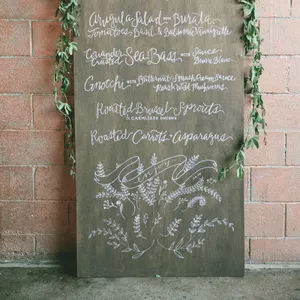 Arugula Salad with Burrata
Tomatoes Basil & Balsamic Vinaigrette
Coriander Crusted Sea Bass with Sauce Beurre Blanc
Gnocchi with Butternut Squash Cream Sauce
Roasted Brussel Sprouts
& Caramelized Onions
Roasted Carrots & Asparagus